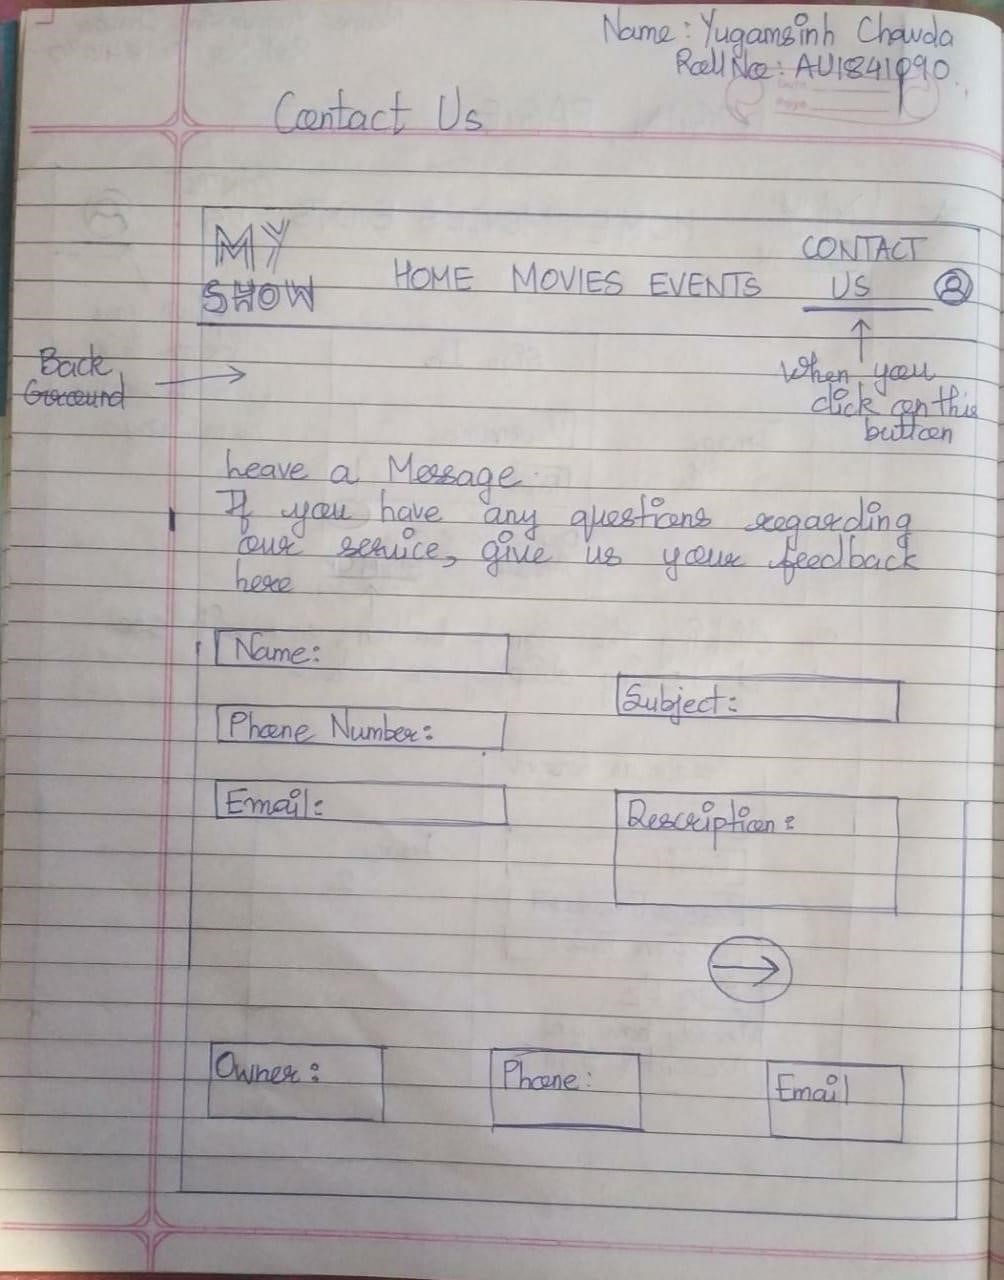 Name: Yugamsinh Chavda
Roll No: AU1841090
Contact Us
MY
SHOW
HOME MOVIES EVENTS
CONTACT
US
Back
Ground
When you
click on this
button
Leave a Message.
If you have any questions regarding
our service, give us your feedback
here
Name:
Subject:
Phone Number:
Email:
Description:
Owner:
Phone:
Email